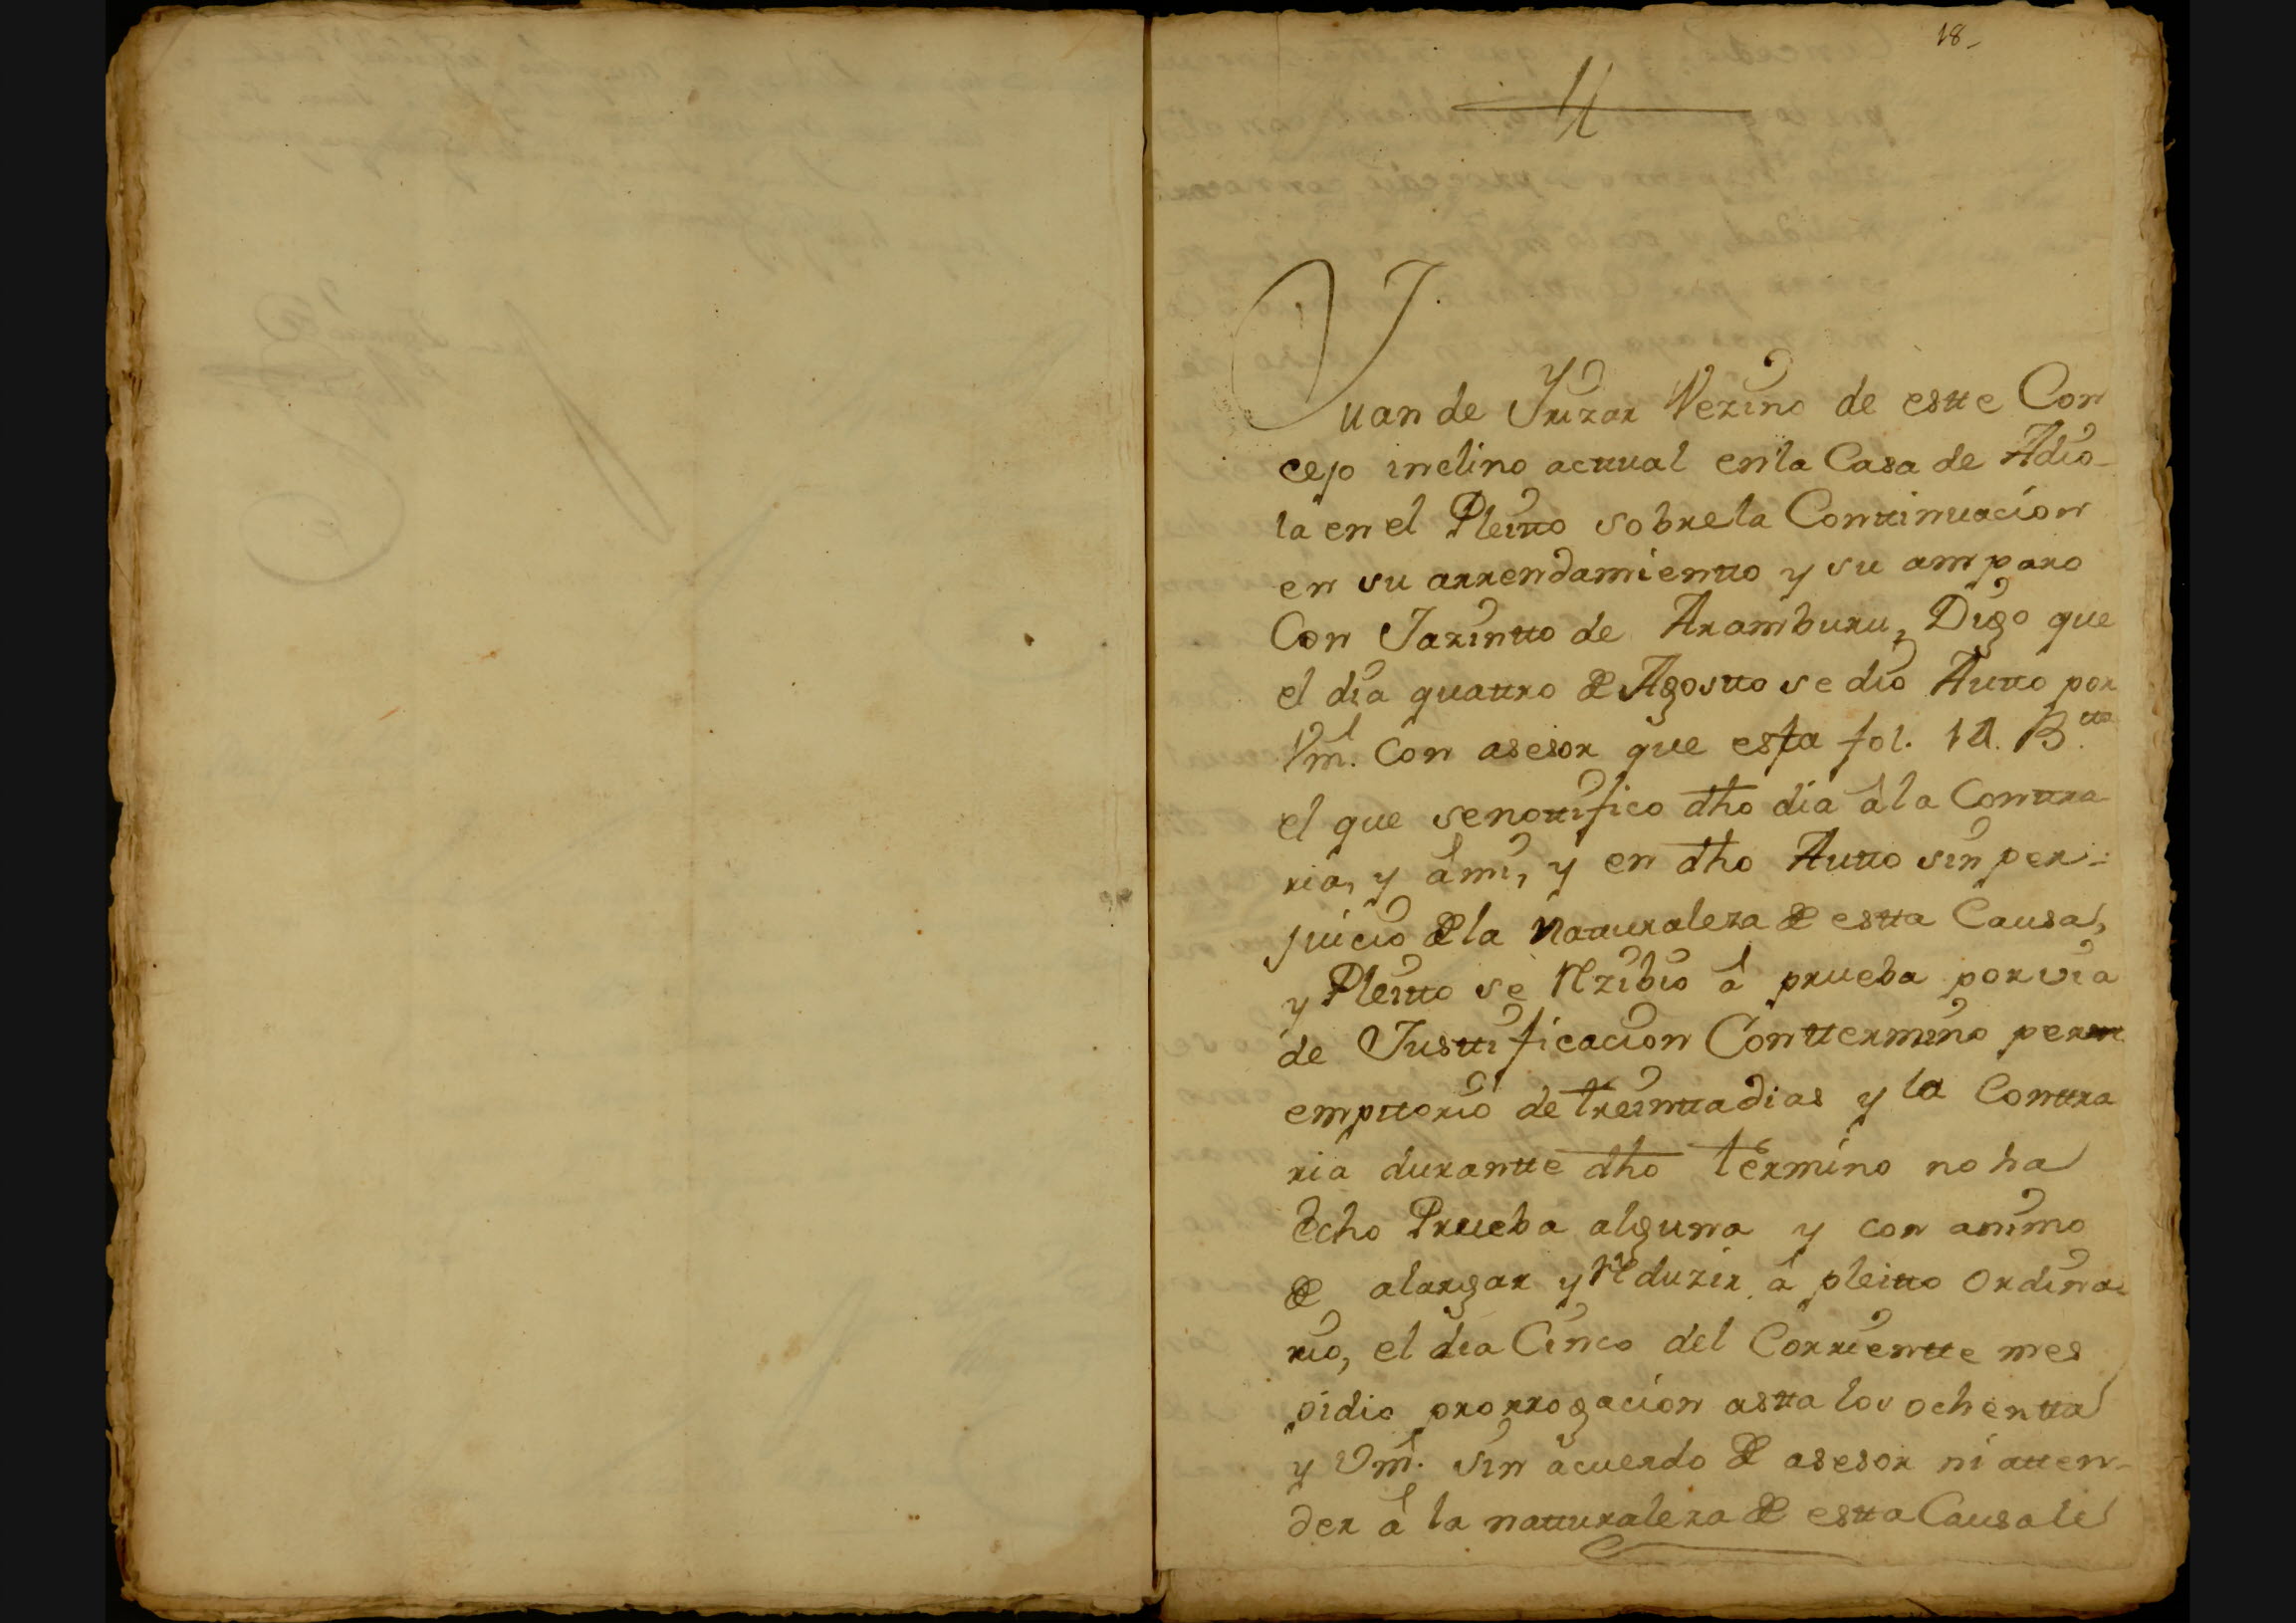 18-
Juan de Yrizar Vezino de estte Con
cejo inclino acttual en la Casa de Adio-
la en el Pleitto sobre la Conttinuacion
en su arrendamientto y su amparo
Con Jazintto de Aramburu, Digo que
el dia quattro de Agostto se dio Autto por
Vm. Con asesor que esta fol. 14. B.tta
el que se nottifico dho dia â la Conttra
ria, y â mi, y en dho Autto sin per-
juicio de la Natturaleza de estta Causa,
y Pleitto se Rezibio â prueba por via
de Justtificacion Con ttermino per
empttorio de treinttadias y la Conttra
ria durantte dho termino no ha
Echo Prueba alguna y con animo
de alargar y Reduzir â pleitto ordina-
rio, el dia Cinco del Corrientte mes
pidio prorrogacion astta los ochentta
y Vm. sin acuerdo de asesor ni atten-
der â la natturaleza de estta Causa le